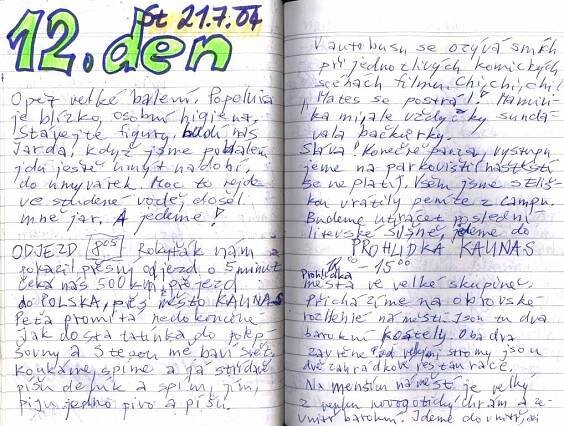 St 21.7.04
12.den
Opět velké balení. Popelnice
je blízko, osobní hygiena.
Stávejte figury, budí nás
Jarda, když jsme pobaleni
jdu ještě umýt nádobí,
do umyvárek. Moc to nejde
ve studené vodě, došel
mně jar. A jedeme!
ODJEZD 805 Rokyťák nám
pokazil přesný odjezd o 5 minut
čeká nás 500 km, přejezd
do POLSKA, přes město KAUNAS
Peťa promítá nedokončené
jak dostat tatínka do
a S tebou mě baví svět,
koukáme, spíme a já střídavě
píšu deník a spím, jím,
piju jedno pivo a píšu.
V autobusu se ozývá smích
při jednotlivých komických
scénách filmu. Chi, chi, chi!
Mates se postral! Mamin-
ka mi ale vždycky sundá-
vala bačkůrky.
Sláva! Konečně vystupu
jeme na parkovišti naštěstí
se neplatí. Všem jsme
vrátily peníze z campu.
Budeme utrácet poslední
litevské jdeme do
PROHLÍDKA KAUNAS
- 15 00
Prohlídka
města ve velké skupině.
Přicházíme na obrovské
rozlehlé náměstí. Jsou tu dva
barokní kostely. Oba dva
zavřené. Pod velkými stromy jsou
dvě zahrádkové restaurace.
Na menším náměstí je velký
z venku novogotický chrám a ze-
vnitř barokní. Jdeme dovnitř,